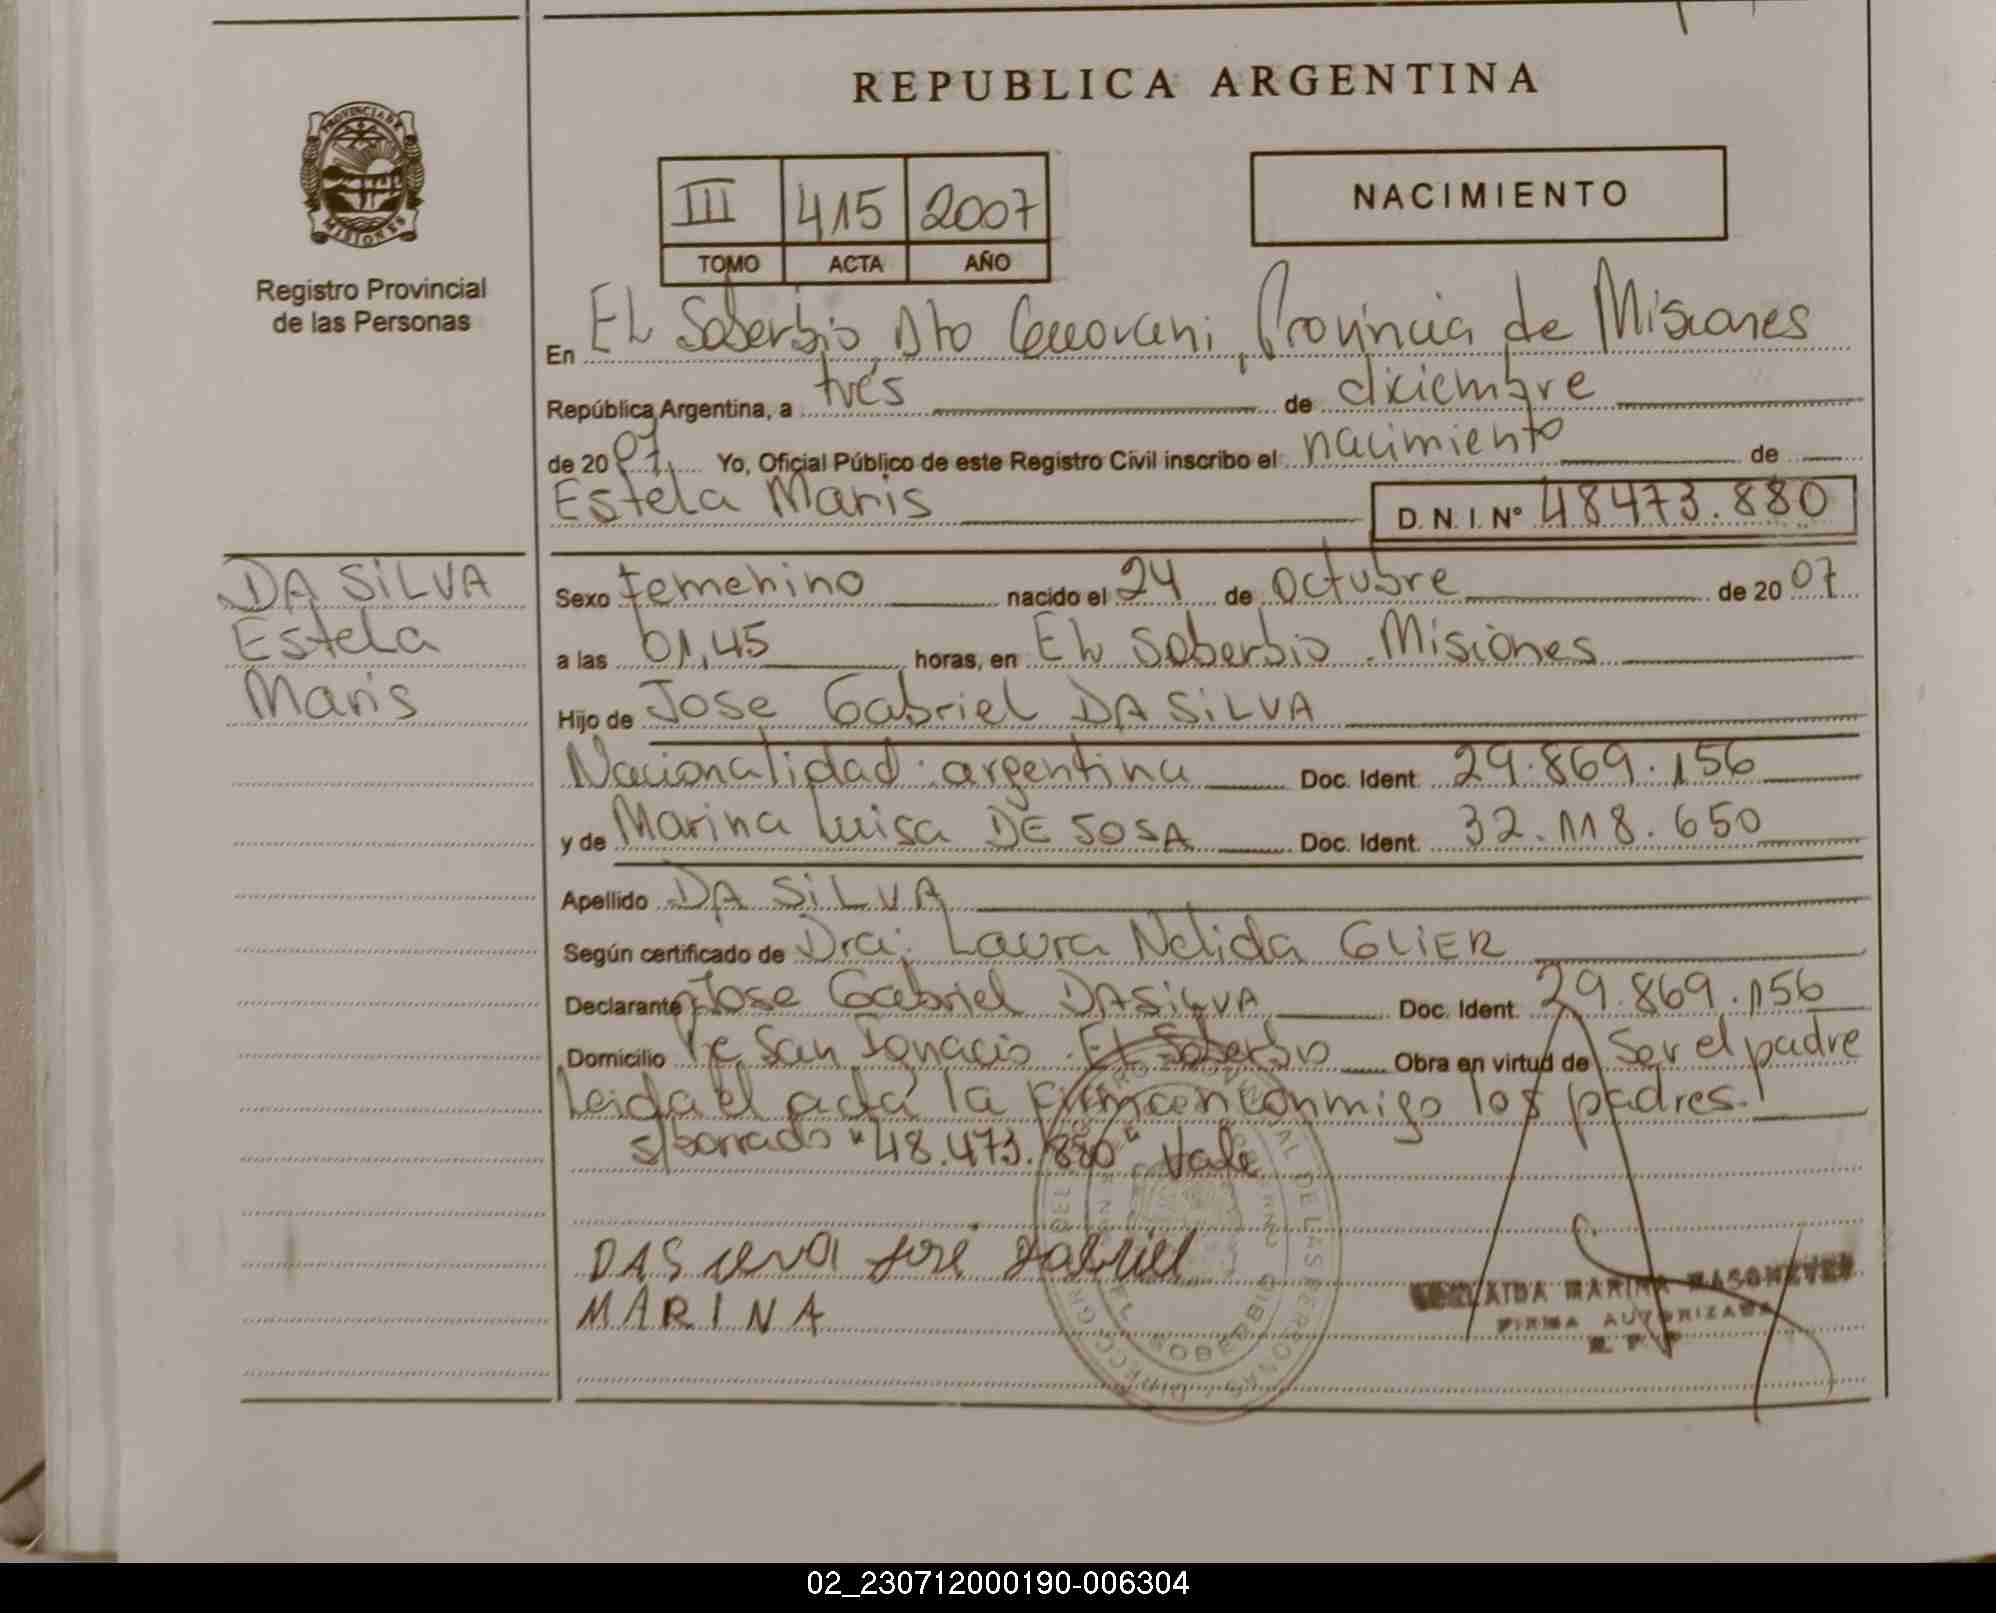 REPUBLICA ARGENTINA
PROVINCIA DE MISIONES
Registro Provincial
de las Personas
III 415 2007
TOMO ACTA AÑO
NACIMIENTO
En EL Soberbio, Dto Guarani, Provincia de Misiones
República Argentina, a tres de diciembre
de 20 07, Yo, Oficial Público de este Registro Civil inscribo el nacimiento de
Estela Maris D. N. I. Nº 48473.880
DA SiLVA
Estela
Maris
Sexo femenino nacido el 24 de octubre de 20 07
a las 01,45 horas, en EL Soberbio. Misiones
Hijo de Jose Gabriel DA SiLVA
Nacionalidad: argentina Doc. Ident. 29.869.156
y de Marina Luisa DE SOSA Doc. Ident. 32.118.650
Apellido DA SiLVA
Según certificado de Dra: Laura Nelida GLiER
Declarante Jose Gabriel DA SiLVA Doc. Ident. 29.869.156
Domicilio San Ignacio. El Soberbio Obra en virtud de Ser el padre
Leida el acta la firman conmigo los padres.
s/borrado "48.473.880" Vale
DASILVA José Gabriel
MARINA
MARINA MASONEVES
FIRMA AUTORIZADA
R. P. P
SOBERBIO
02_230712000190-006304